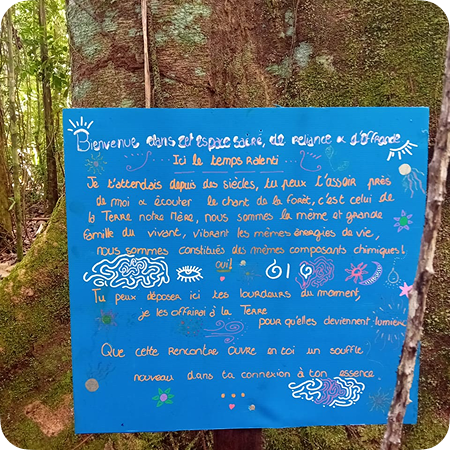 Bienvenue dans cet espace sacré, de reliance & d'offrande
Ici le temps ralenti ...
Je t'attendais depuis des siècles, tu peux t'assoir près
de moi & écouter le chant de la forêt, c'est celui de
la Terre notre Mère, nous sommes la même et grande
famille du vivant, vibrant les mêmes énergies de vie,
nous sommes constitués des mêmes composants chimiques !
oui !
Tu peux déposer ici tes lourdeurs du moment,
je les offrirai à la Terre
pour qu'elles deviennent lumière
Que cette rencontre ouvre en toi un souffle
nouveau dans ta connexion à ton essence.